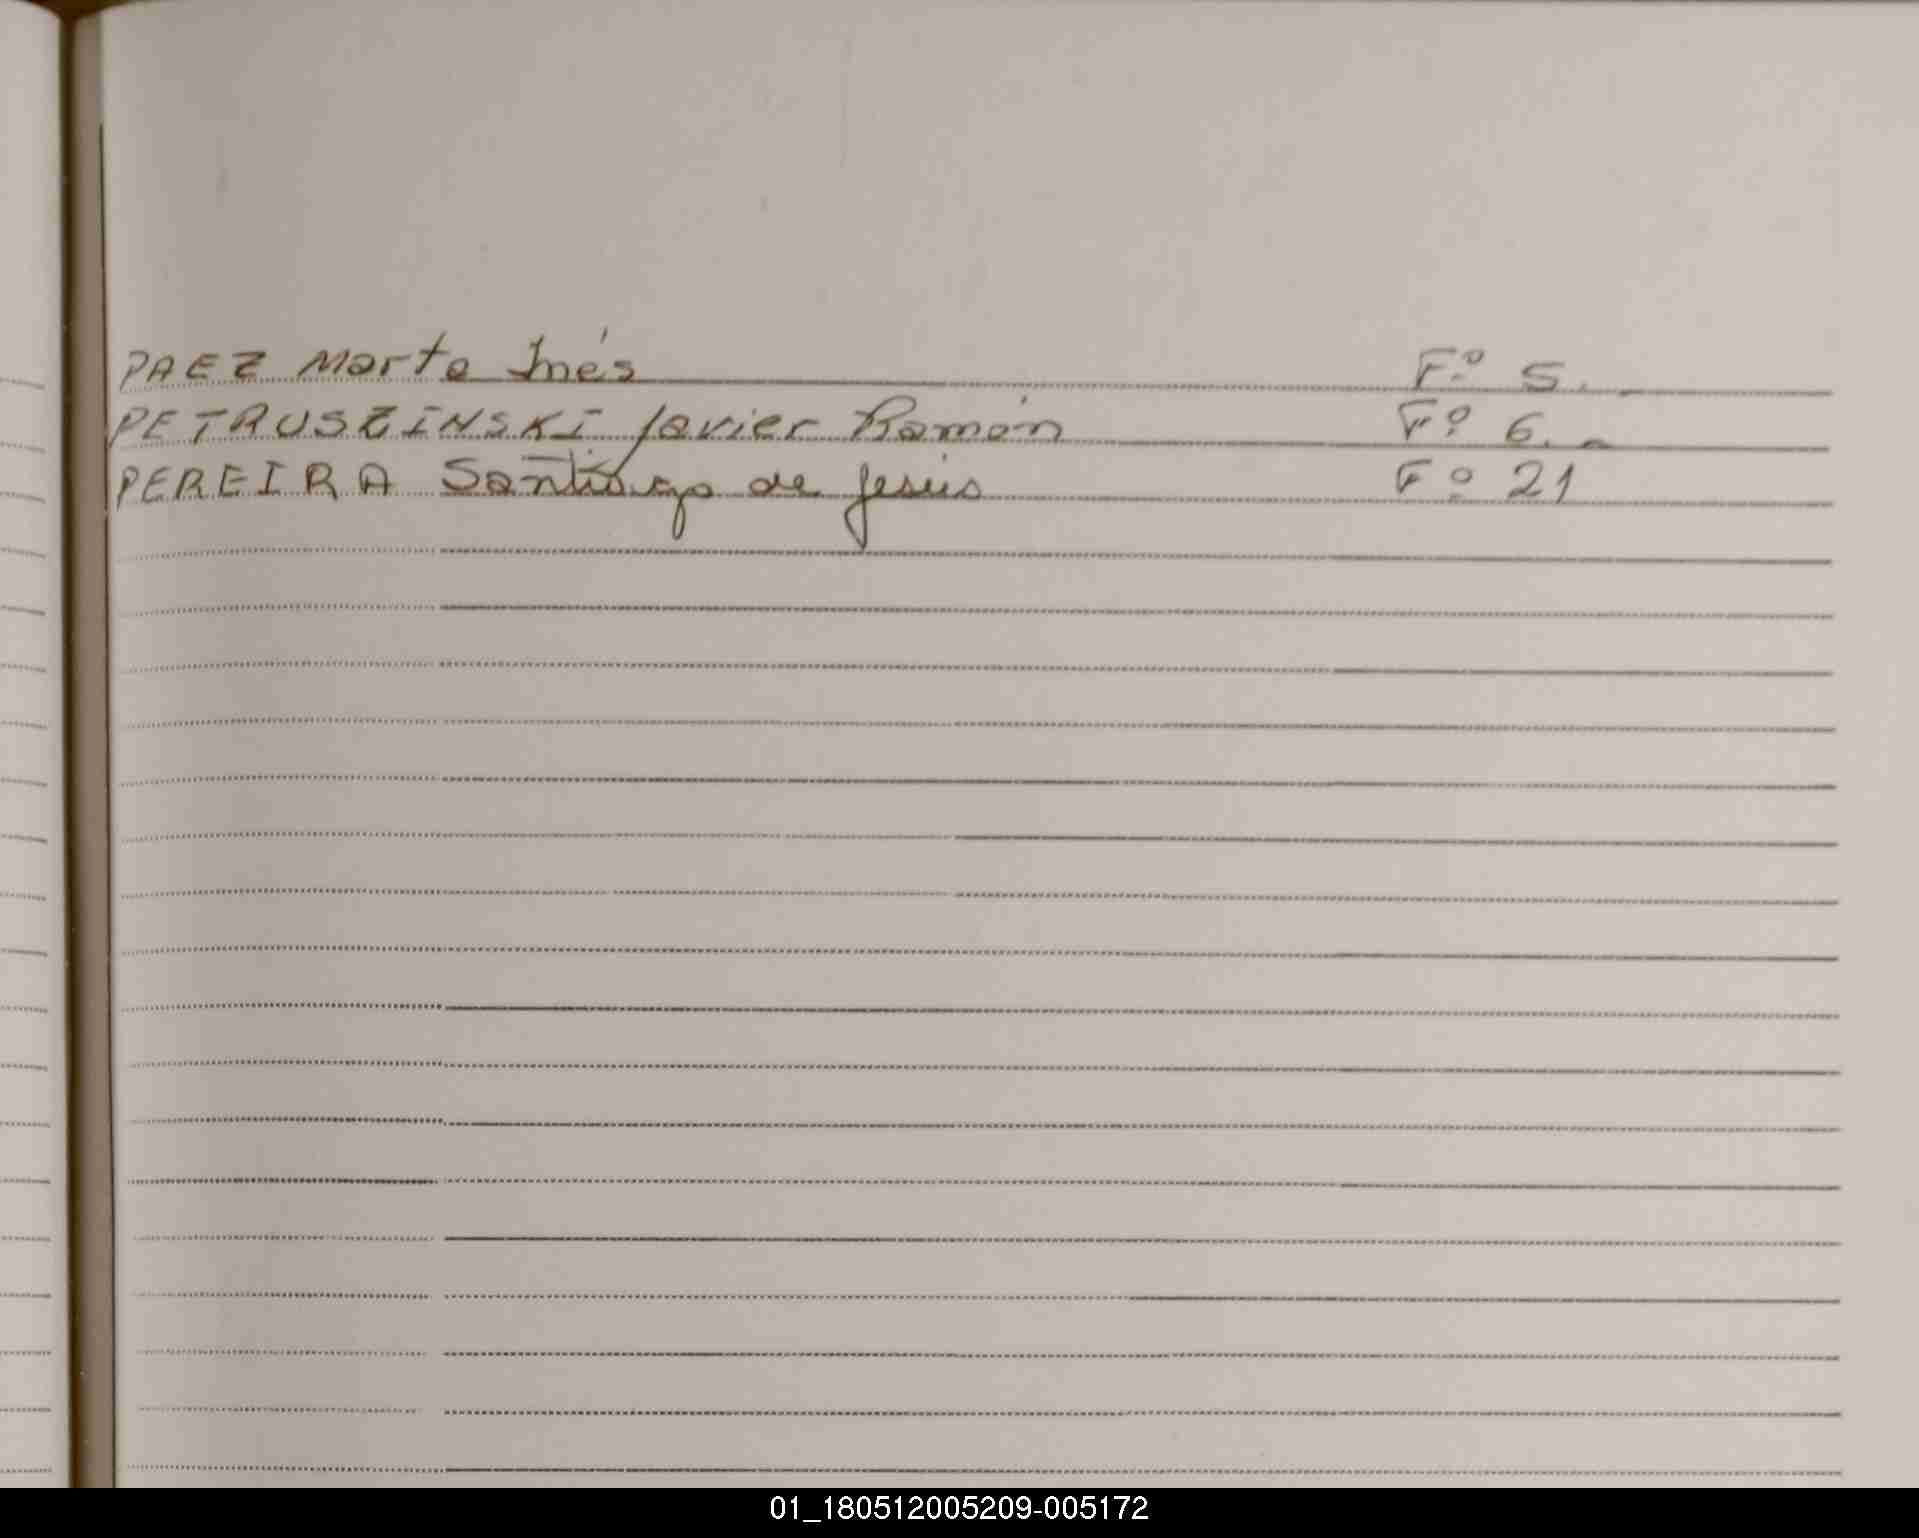 PAEZ Marta Inés Fº 5.-
PETRUSZINSKI Javier Ramón Fº 6.-
PEREIRA Santiago de Jesús Fº 21
01_180512005209-005172